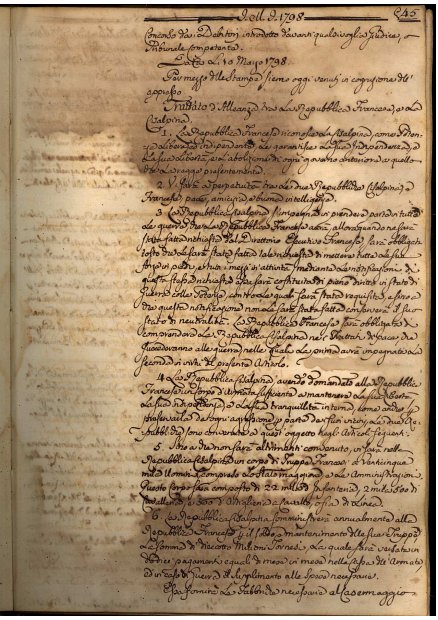 J. M. J. 1798
245
Concorso d'un Debitore introdotto davanti qualsivoglia Giudice, o
Tribunale competente.
Li 10 Marzo 1798.
Per mezzo delle Stampe siemo oggi venuti in cognizione dell'
appresso
Trattato d'Alleanza tra La Repubblica Francese, e La
Cisalpina.
1. La Repubblica Francese riconosce La Cisalpina, come Poten-
za Libera, e independente, Le garantisce La Sua Independenza,
La Sua Libertà, e abolizione di ogni governo anteriore a quello
che La regge presentemente.
2. Vi sarà a perpetuità tra Le due Repubbliche Cisalpina, e
Francese pace, amicizia, e buona intelligenza.
3. La Repubblica Cisalpina s'impegna di prendere parte in tutte
Le guerre che La Repubblica Francese avrà, allorquando ne sarà
stata fatta richiesta dal Direttorio Esecutivo Francese, sarà obbligata
tosto che Le sarà stata fatta La richiesta di mettere tutte Le sue
forze in piedi, e tutti i mezzi di attività. Mediante La notificazione di
questa stessa richiesta essa sarà costituita di pieno diritto in stato di
Guerra colle Potenze, contro Le quali sarà stata requisita, e sino a
che questa notificazione non Le sarà stata fatta conserverà il suo
stato di neutralità. La Repubblica Francese sarà obbligata di
comprendere La Repubblica Cisalpina nei Trattati di pace, che
succederanno alle guerre, nelle quali La prima avrà impegnata La
seconda in virtù del presente Articolo.
4. La Repubblica Cisalpina, avendo domandato alla Repubblica
Francese un Corpo d'Armata sufficiente a mantenere La Sua Libertà,
La Sua independenza, e La Sua tranquillità interna, come anche
preservarla da ogni aggressione per parte de' suoi vicini, Le due Re-
pubbliche sono convenute a questo oggetto negli Articoli seguenti.
5. Sino a che non sarà altrimenti convenuto, vi sarà nella
Repubblica Cisalpina un corpo di Truppe Francesi di Venticinque
mila Uomini, compreso Lo Stato maggiore, e Le Amministrazioni.
Questo corpo sarà composto di 22 mila di fanteria, 2 mila 500 di
Cavalleria, e 500 d'Artiglieria a Cavallo, o sia di Linea.
6. La Repubblica Cisalpina somministrerà annualmente alla
Repubblica Francese p. il soldo, e mantenimento delle sue Truppe
La Somma di Diciotto Milioni Tornesi, La quale sarà versata in
dodici pagamenti eguali di mese in mese nella Cassa dell'Armata,
ed in caso di guerra il Supplimento alle Spese necessarie.
Essa fornirà Le fabbriche necessarie al Casermaggio